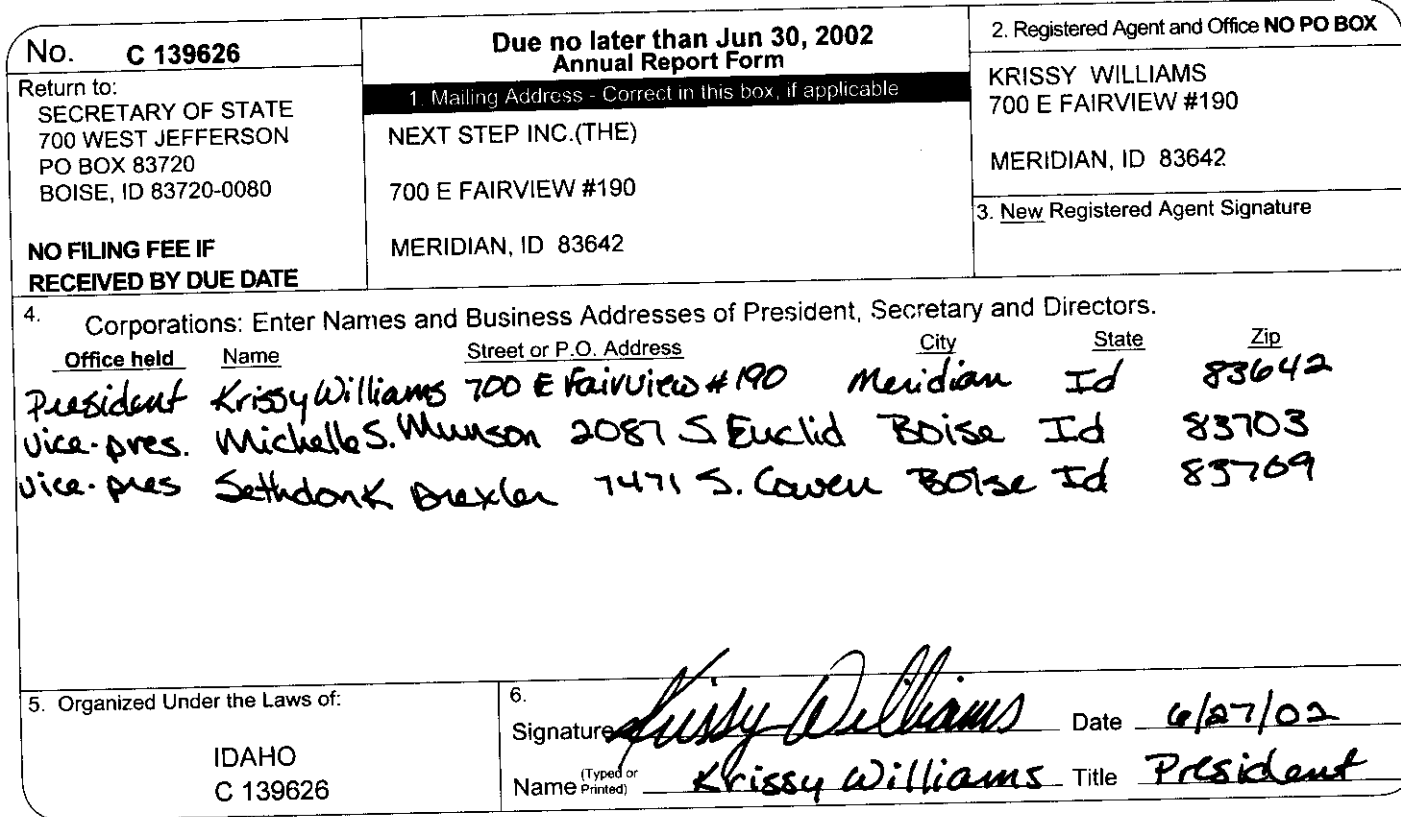 No. C 139626
Return to:
SECRETARY OF STATE
700 WEST JEFFERSON
PO BOX 83720
BOISE, ID 83720-0080
NO FILING FEE IF
RECEIVED BY DUE DATE
Due no later than Jun 30, 2002
Annual Report Form
1. Mailing Address - Correct in this box, if applicable
NEXT STEP INC.(THE)
700 E FAIRVIEW #190
MERIDIAN, ID 83642
2. Registered Agent and Office NO PO BOX
KRISSY WILLIAMS
700 E FAIRVIEW #190
MERIDIAN, ID 83642
3. New Registered Agent Signature
4. Corporations: Enter Names and Business Addresses of President, Secretary and Directors.
Office held Name Street or P.O. Address City State Zip
President Krissy Williams 700 E Fairview #190 Meridian Id 83642
Vice-pres. Michelle S. Munson 2087 S Euclid Boise Id 83703
Vice-pres 7471 S. Boise Id 83709
5. Organized Under the Laws of:
IDAHO
C 139626
6.
Signature Krissy Williams Date 6/27/02
Name (Typed or Printed) Krissy Williams Title President